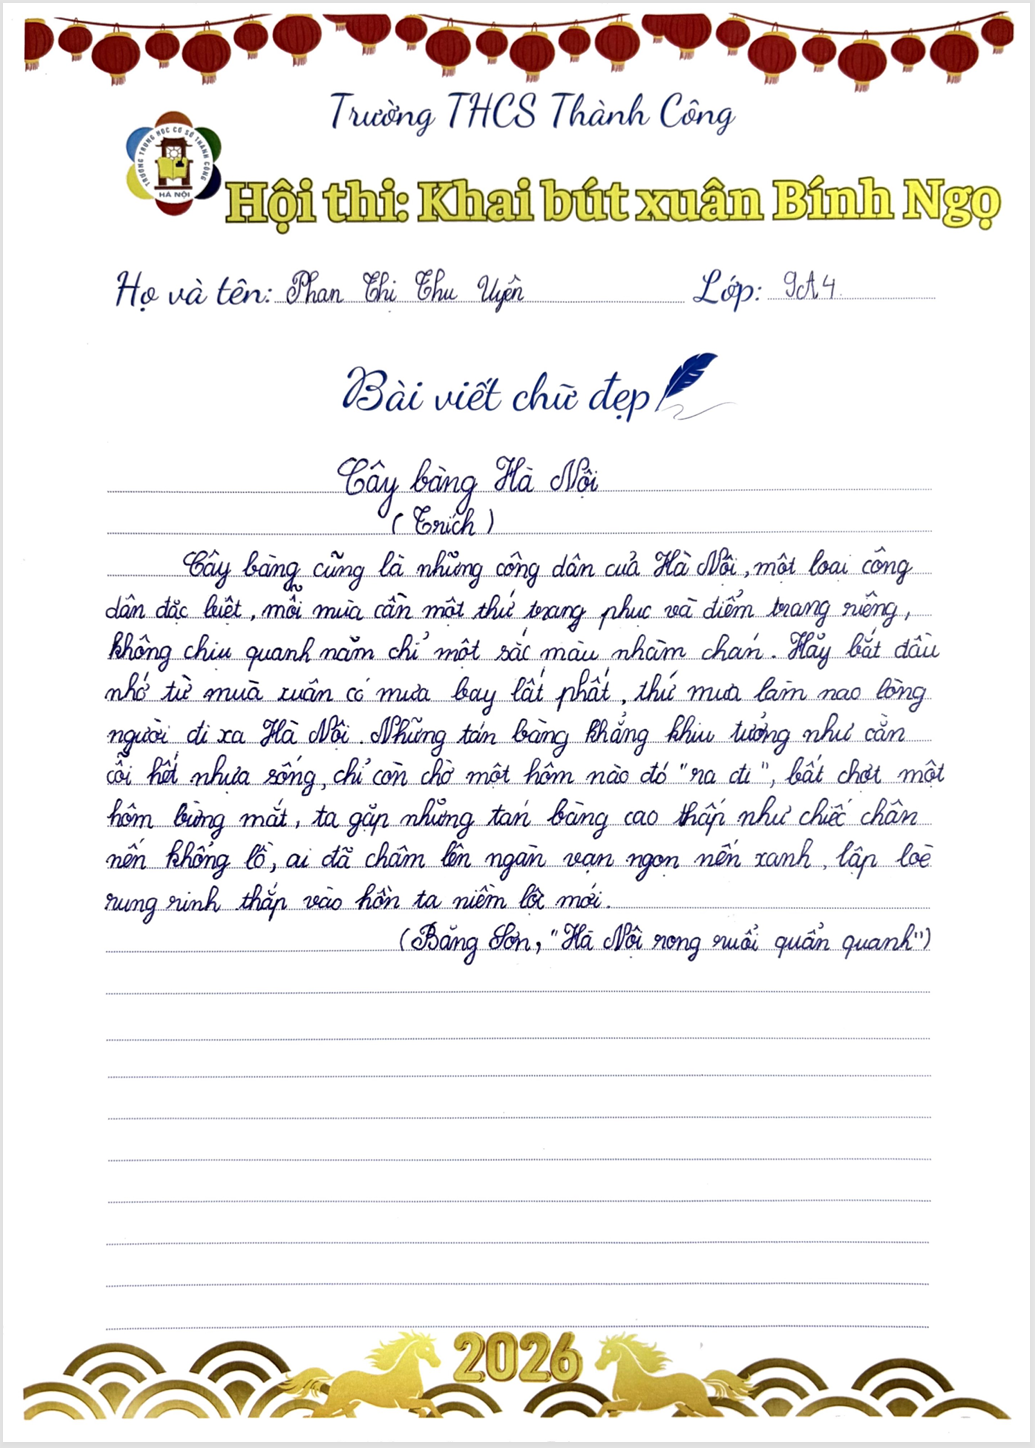 Trường THCS Thành Công
TRƯỜNG TRUNG HỌC CƠ SỞ THÀNH CÔNG
HÀ NỘI
Hội thi: Khai bút xuân Bính Ngọ
Họ và tên: Phan Thị Thu Uyên Lớp: 9A4
Bài viết chữ đẹp
Cây bàng Hà Nội
( Trích )
Cây bàng cũng là những công dân của Hà Nội, một loại công
dân đặc biệt, mỗi mùa cần một thứ trang phục và điểm trang riêng,
không chịu quanh năm chỉ một sắc màu nhàm chán. Hãy bắt đầu
nhớ từ mùa xuân có mưa bay lất phất, thứ mưa làm nao lòng
người đi xa Hà Nội. Những tán bàng khẳng khiu tưởng như cằn
cỗi hết nhựa sống, chỉ còn chờ một hôm nào đó "ra đi", bất chợt một
hôm bừng mắt, ta gặp những tán bàng cao thấp như chiếc chân
nến khổng lồ, ai đã châm lên ngàn vạn ngọn nến xanh, lập loè
rung rinh thắp vào hồn ta niềm lộc mới.
(Băng Sơn, "Hà Nội rong ruổi quẩn quanh")
2026